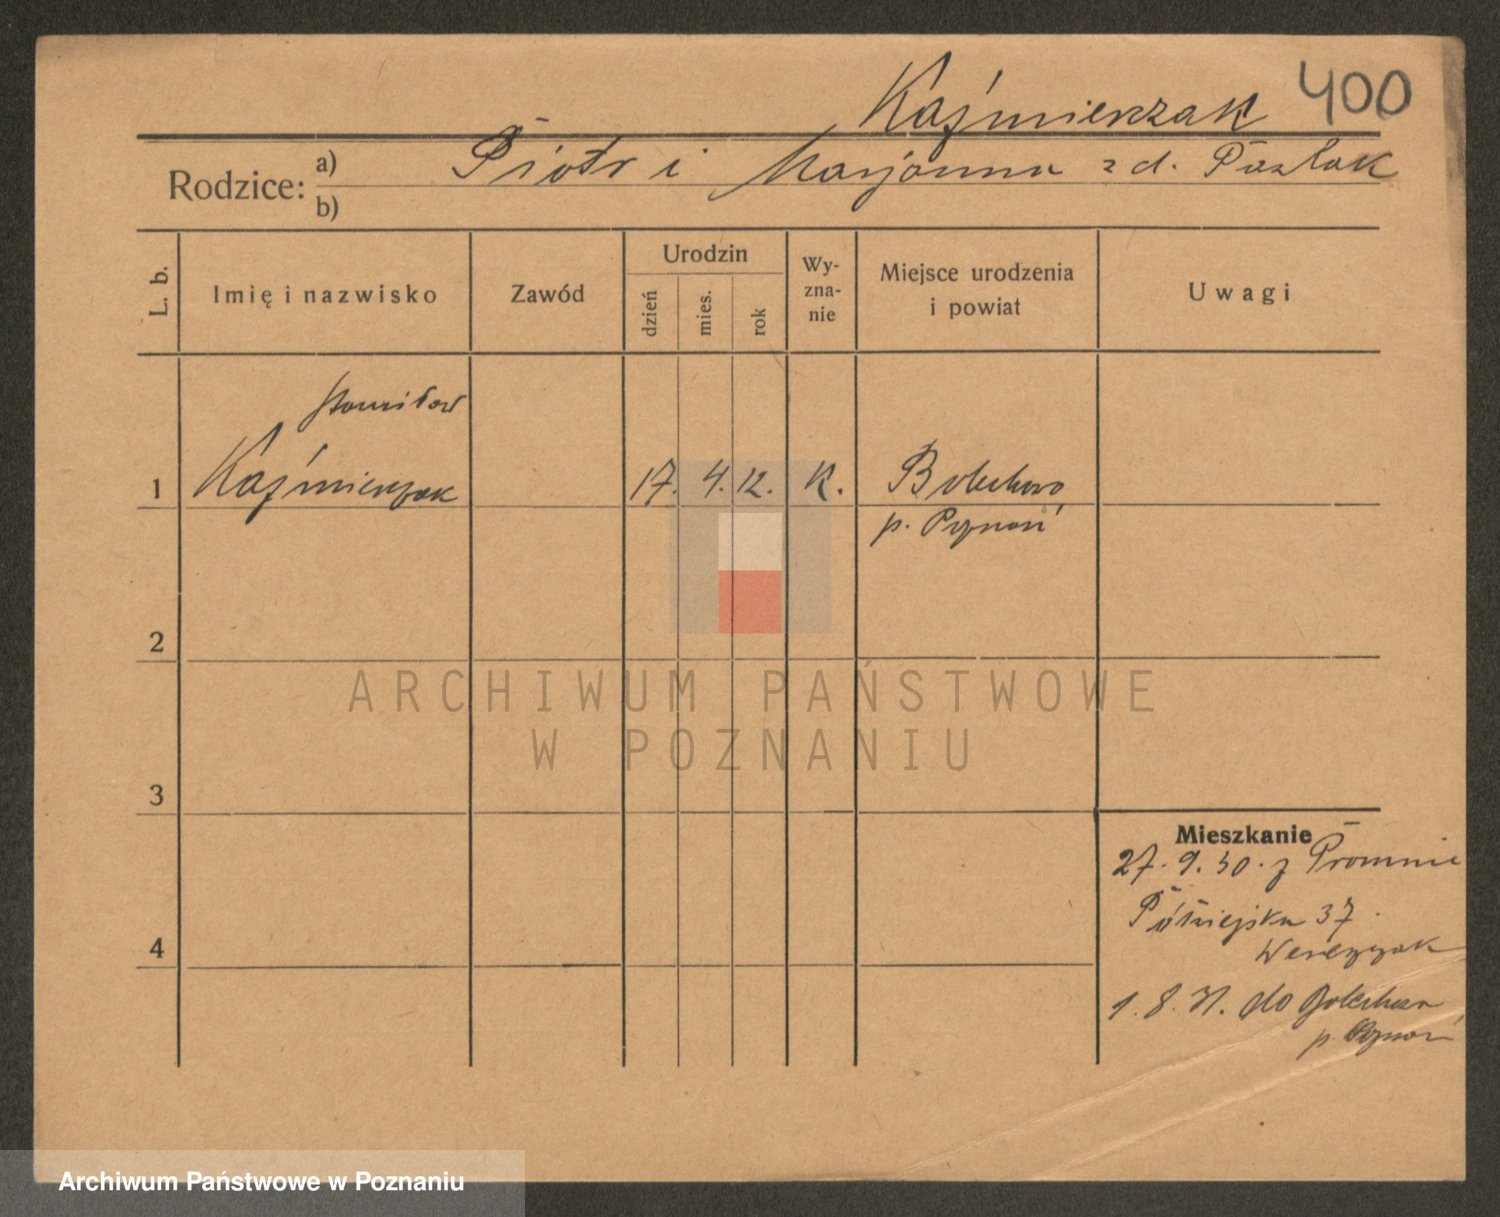 Kaźmierczak 400
Rodzice: a) Piotr i Marjanna z d. Pawlak
b)
L. b.
Imię i nazwisko
Zawód
Urodzin
dzień
mies.
rok
Wy-
zna-
nie
Miejsce urodzenia
i powiat
Uwagi
Stanisław
1 Kaźmierczak 17. 4. 12. K. Bolechowo
p. Poznań
2
3
4
ARCHIWUM PAŃSTWOWE
W POZNANIU
Mieszkanie
27. 9. 30. z Promnic
37
1. 8. 31. do
p. Poznań
Archiwum Państwowe w Poznaniu